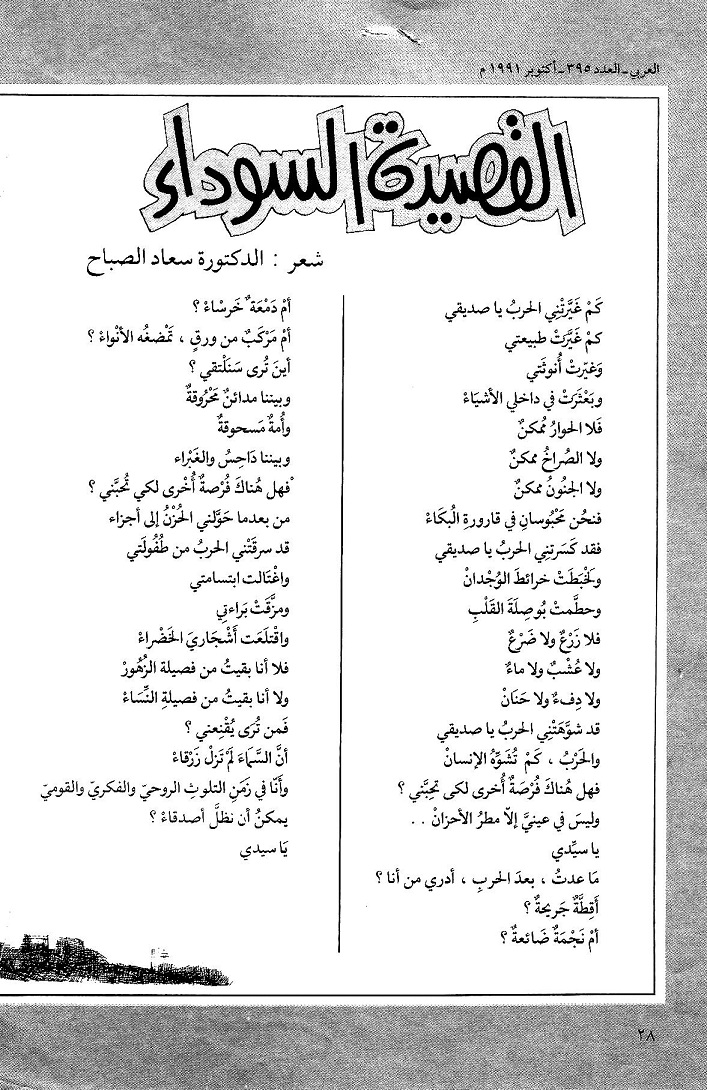 العربي ـ العدد ٣٩٥ ـ أكتوبر ١٩٩١ م
القصيدة السوداء
شعر : الدكتورة سعاد الصباح
كَمْ غَيَّرتْنِي الحربُ يا صديقي
كمْ غَيَّرَتْ طبيعتي
وَغيّرتْ أُنوثَتي
وبَعْثَرَتْ في داخلي الأشيَاءْ
فَلا الحوارُ مُمكنٌ
ولا الصُراخُ ممكنٌ
ولا الجنُونُ ممكنٌ
فنحُن مَحْبُوسانِ في قارورةِ الْبُكَاءْ
فقد كَسَرتنِي الحربُ يا صديقي
ولَخْبَطَتْ خرائطَ الوُجْدانْ
وحطَّمتْ بُوصِلَةَ القَلْبِ
فلا زَرْعٌ ولا ضَرْعٌ
ولا عُشْبٌ ولا ماءٌ
ولا دِفءٌ ولا حَنَانْ
قد شوَّهَتْنِي الحربُ يا صديقي
والحَرْبُ ، كَمْ تُشَوِّهُ الإنسانْ
فهل هُناكَ فُرْصَةٌ أُخرى لكى تحِبَّني ؟
وليسَ في عينيَّ إلاّ مطرُ الأحزانْ . .
يا سيِّدي
مَا عدتُ ، بعدَ الحربِ ، أدري من أنا ؟
أَقِطَّةٌ جَريحةٌ ؟
أمْ نَجْمَةٌ ضَائعةٌ ؟
أمْ دَمْعَةٌ خَرسْاءْ ؟
أمْ مَرْكَبٌ من ورقٍ ، تَمْضغُه الأنْواءْ ؟
أينَ تُرى سَنَلْتقي ؟
وبيننا مدائنٌ مَحْرُوقةٌ
وأُمةٌ مَسحوقةٌ
وبيننا دَاحِسُ والغَبْراء
فهل هُناكَ فُرْصةٌ أُخْرى لكي تُحبَّني ؟
من بعدما حَوَّلني الحُزْنُ إلى أجزاء
قد سرقَتْني الحربُ من طُفُولَتي
واغْتَالت ابتسامتي
ومزَّقَتْ بَراءتِي
واقْتلَعَت أَشْجاريَ الخَضْراءْ
فلا أنا بقيتُ من فصيلة الزُهُورْ
ولا أنا بقيتُ من فصيلةِ النِّسَاءْ
فَمن تُرَى يُقْنِعني ؟
أنَّ السَّمَاءَ لَمْ تَزلْ زَرْقاءْ
وأَنّا في زَمَنِ التلوثِ الروحيّ والفكريّ والقوميّ
يمكنُ أن نظلَّ أصدقاءْ ؟
يَا سيدي
٢٨